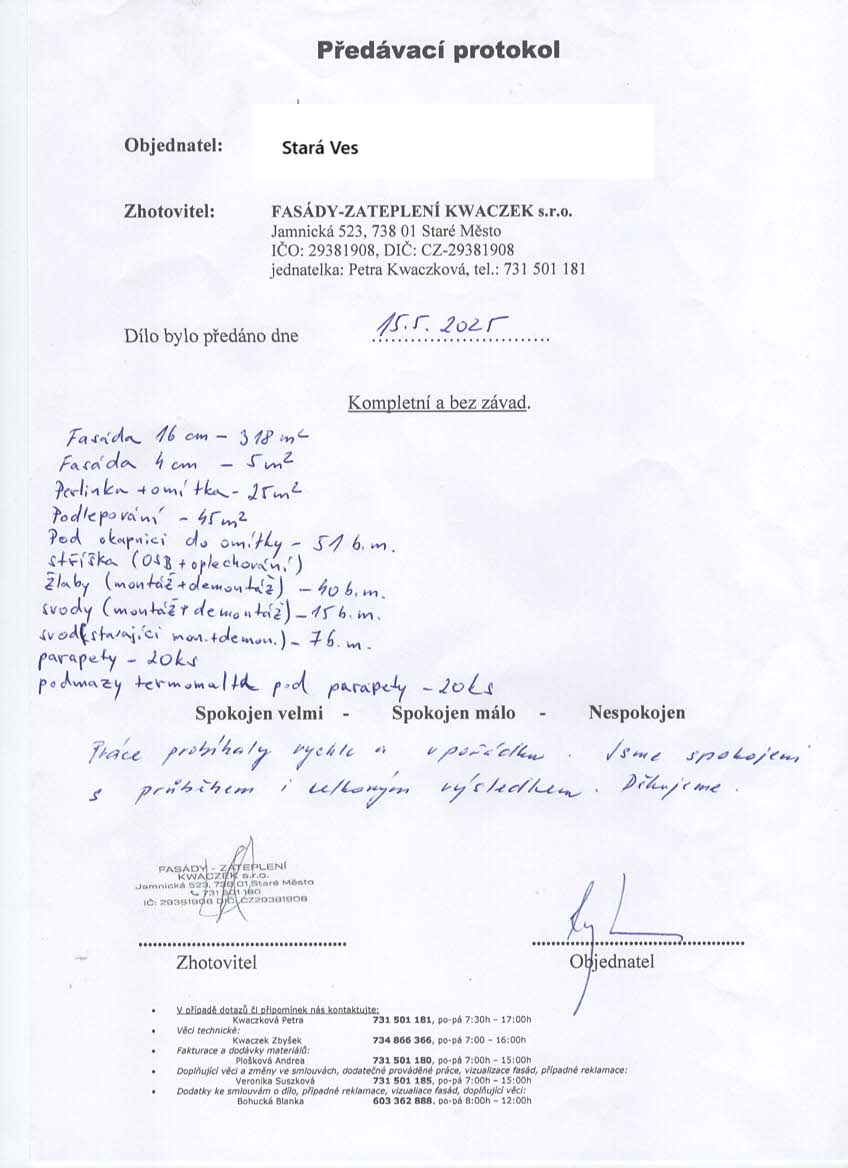 Předávací protokol
Objednatel: Stará Ves
Zhotovitel: FASÁDY-ZATEPLENÍ KWACZEK s.r.o.
Jamnická 523, 738 01 Staré Město
IČO: 29381908, DIČ: CZ-29381908
jednatelka: Petra Kwaczková, tel.: 731 501 181
Dílo bylo předáno dne 15.5. 2025
Kompletní a bez závad.
Fasáda 16 cm – 318 m²
Fasáda 4 cm – 5 m²
Perlinka + omítka – 25 m²
Podlepování – 45 m²
Pod okapnici do omítky – 51 b.m.
stříška (OSB + oplechování)
žlaby (montáž + demontáž) – 40 b.m.
svody (montáž + demontáž) – 15 b.m.
svod (stávající mon. + demon.) – 7 b.m.
parapety – 20ks
podmazy termomaltk pod parapety – 20ks
Spokojen velmi - Spokojen málo - Nespokojen
Práce probíhaly rychle a v pořádku. Jsme spokojeni
s průběhem i celkovým výsledkem. Děkujeme.
FASÁDY - ZATEPLENÍ
KWACZEK s.r.o.
Jamnická 523, 738 01 Staré Město
731 501 180
IČ: 29381908 DIČ: CZ29381908
Zhotovitel Objednatel
• V případě dotazů či připomínek nás kontaktujte:
Kwaczková Petra 731 501 181, po-pá 7:30h – 17:00h
• Věci technické:
Kwaczek Zbyšek 734 866 366, po-pá 7:00 – 16:00h
• Fakturace a dodávky materiálů:
Plošková Andrea 731 501 180, po-pá 7:00h – 15:00h
• Doplňující věci a změny ve smlouvách, dodatečné prováděné práce, vizualizace fasád, případné reklamace:
Veronika Suszková 731 501 185, po-pá 7:00h – 15:00h
• Dodatky ke smlouvám o dílo, případné reklamace, vizualiace fasád, doplňující věci:
Bohucká Blanka 603 362 888, po-pá 8:00h – 12:00h